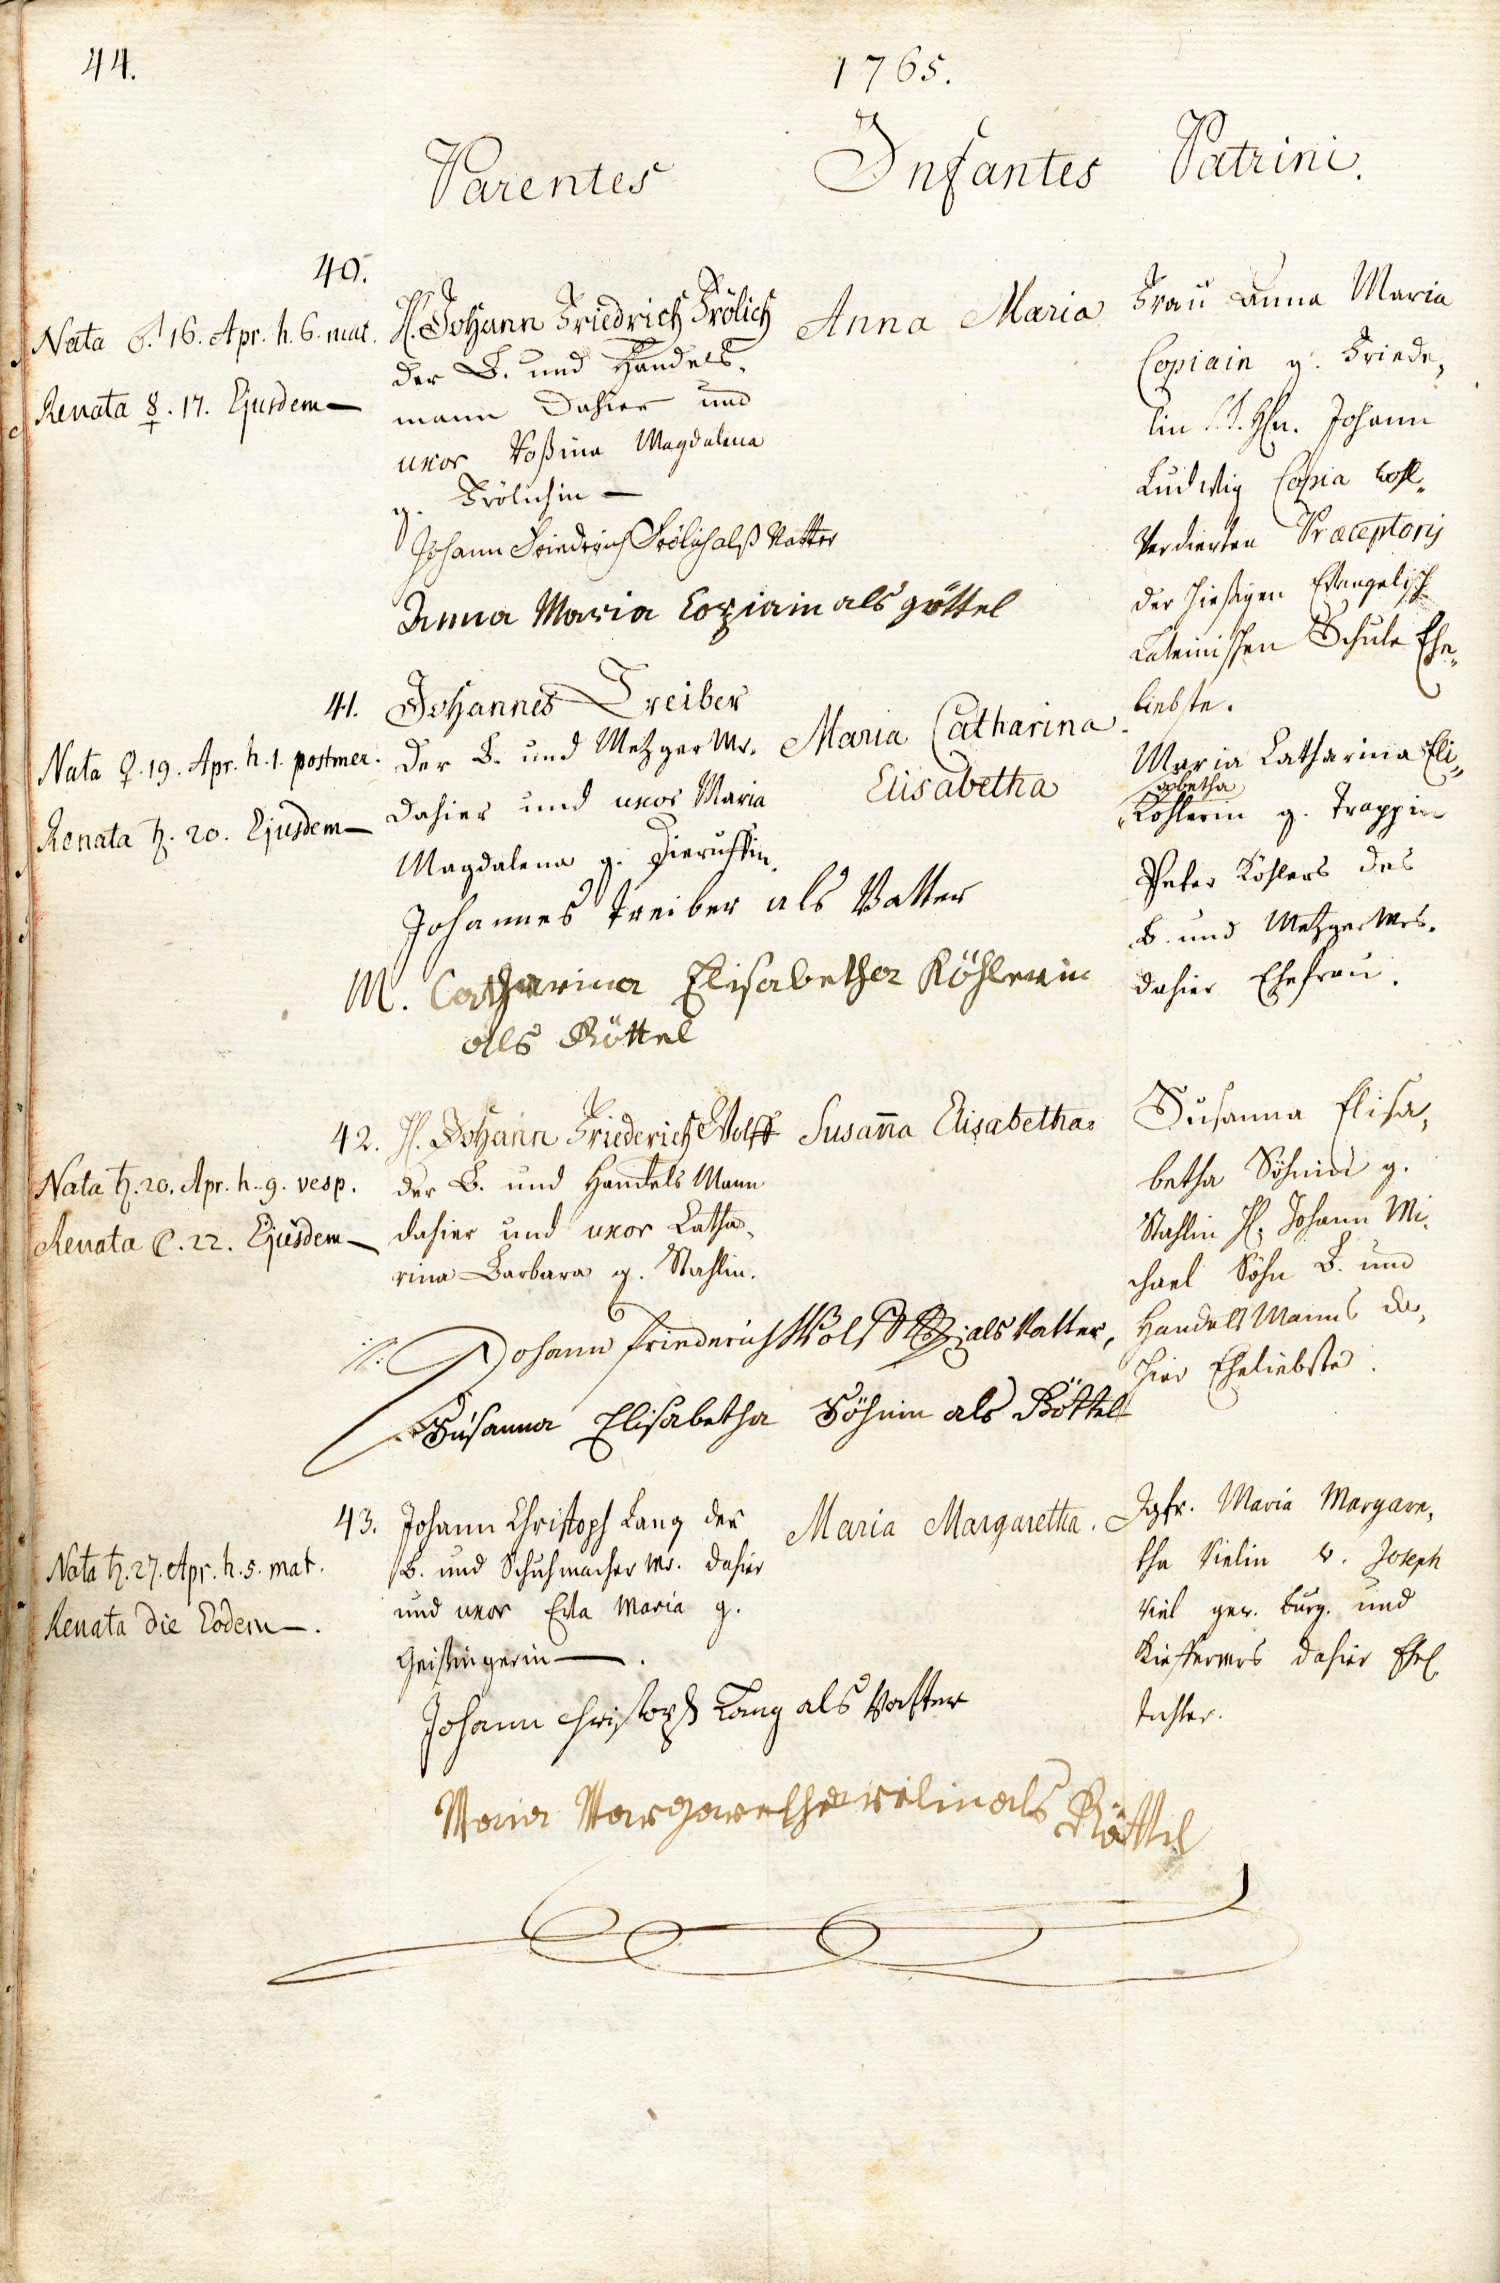 44.
1765.
Parentes Infantes Patrini.
40.
Nata ♂. 16. Apr. h. 6. mat.
Renata ☿. 17. Ejusdem —
H. Johann Friedrich Frölich
der B. und Handels„
mann dahier und
uxor Rosina Magdalena
g. Frölichin —
Johann Friedrich Frölich alß Vatter
Anna Maria Copiain als göttel
Anna Maria
Frau Anna Maria
Copiain g. Friede„
lin Hn. Johann
Ludwig Copia wohl„
Verdienten Præceptoris
der hiesigen Evangelisch
Lateinischen Schule Ehe„
liebste.
41.
Nata ♀. 19. Apr. h. 1. postmer.
Renata ♄. 20. Ejusdem —
Johannes Treiber
der B. und Metzger Mr.
dahier und uxor Maria
Magdalena g. Dieruffin.
Johannes Treiber als Vatter
M. Catharina Elisabetha Köhlerin
als Göttel
Maria Catharina
Elisabetha
Maria Catharina Eli„
sabetha
Köhlerin g. Trappin
Peter Köhlers des
B. und Metzger Mrs.
dahier Ehefrau.
42.
Nata ♄. 20. Apr. h. 9. vesp.
Renata ☾. 22. Ejusdem —
H. Johann Friederich Wolff
der B. und Handels Mann
dahier und uxor Catha„
rina Barbara g. Stahlin.
Johann Friederich Wolff als Vatter,
Susanna Elisabetha Söhnin als Göttel
Susan̄a Elisabetha.
Susanna Elisa„
betha Söhnin g.
Stahlin H. Johann Mi„
chael Söhn B. und
Handels Manns da„
hier Eheliebste.
43.
Nata ♄. 27. Apr. h. 5. mat.
Renata die Eodem —.
Johann Christoph Lang der
B. und Schuhmacher Mr. dahier
und uxor Eva Maria g.
Geißingerin —.
Johann Christoph Lang als Vatter
Maria Margaretha vielin als Göttel
Maria Margaretha.
Jgfr. Maria Margare„
tha Vielin v. Joseph
Viel gew. burg. und
Kieffermrs dahier Ehel.
Tochter.